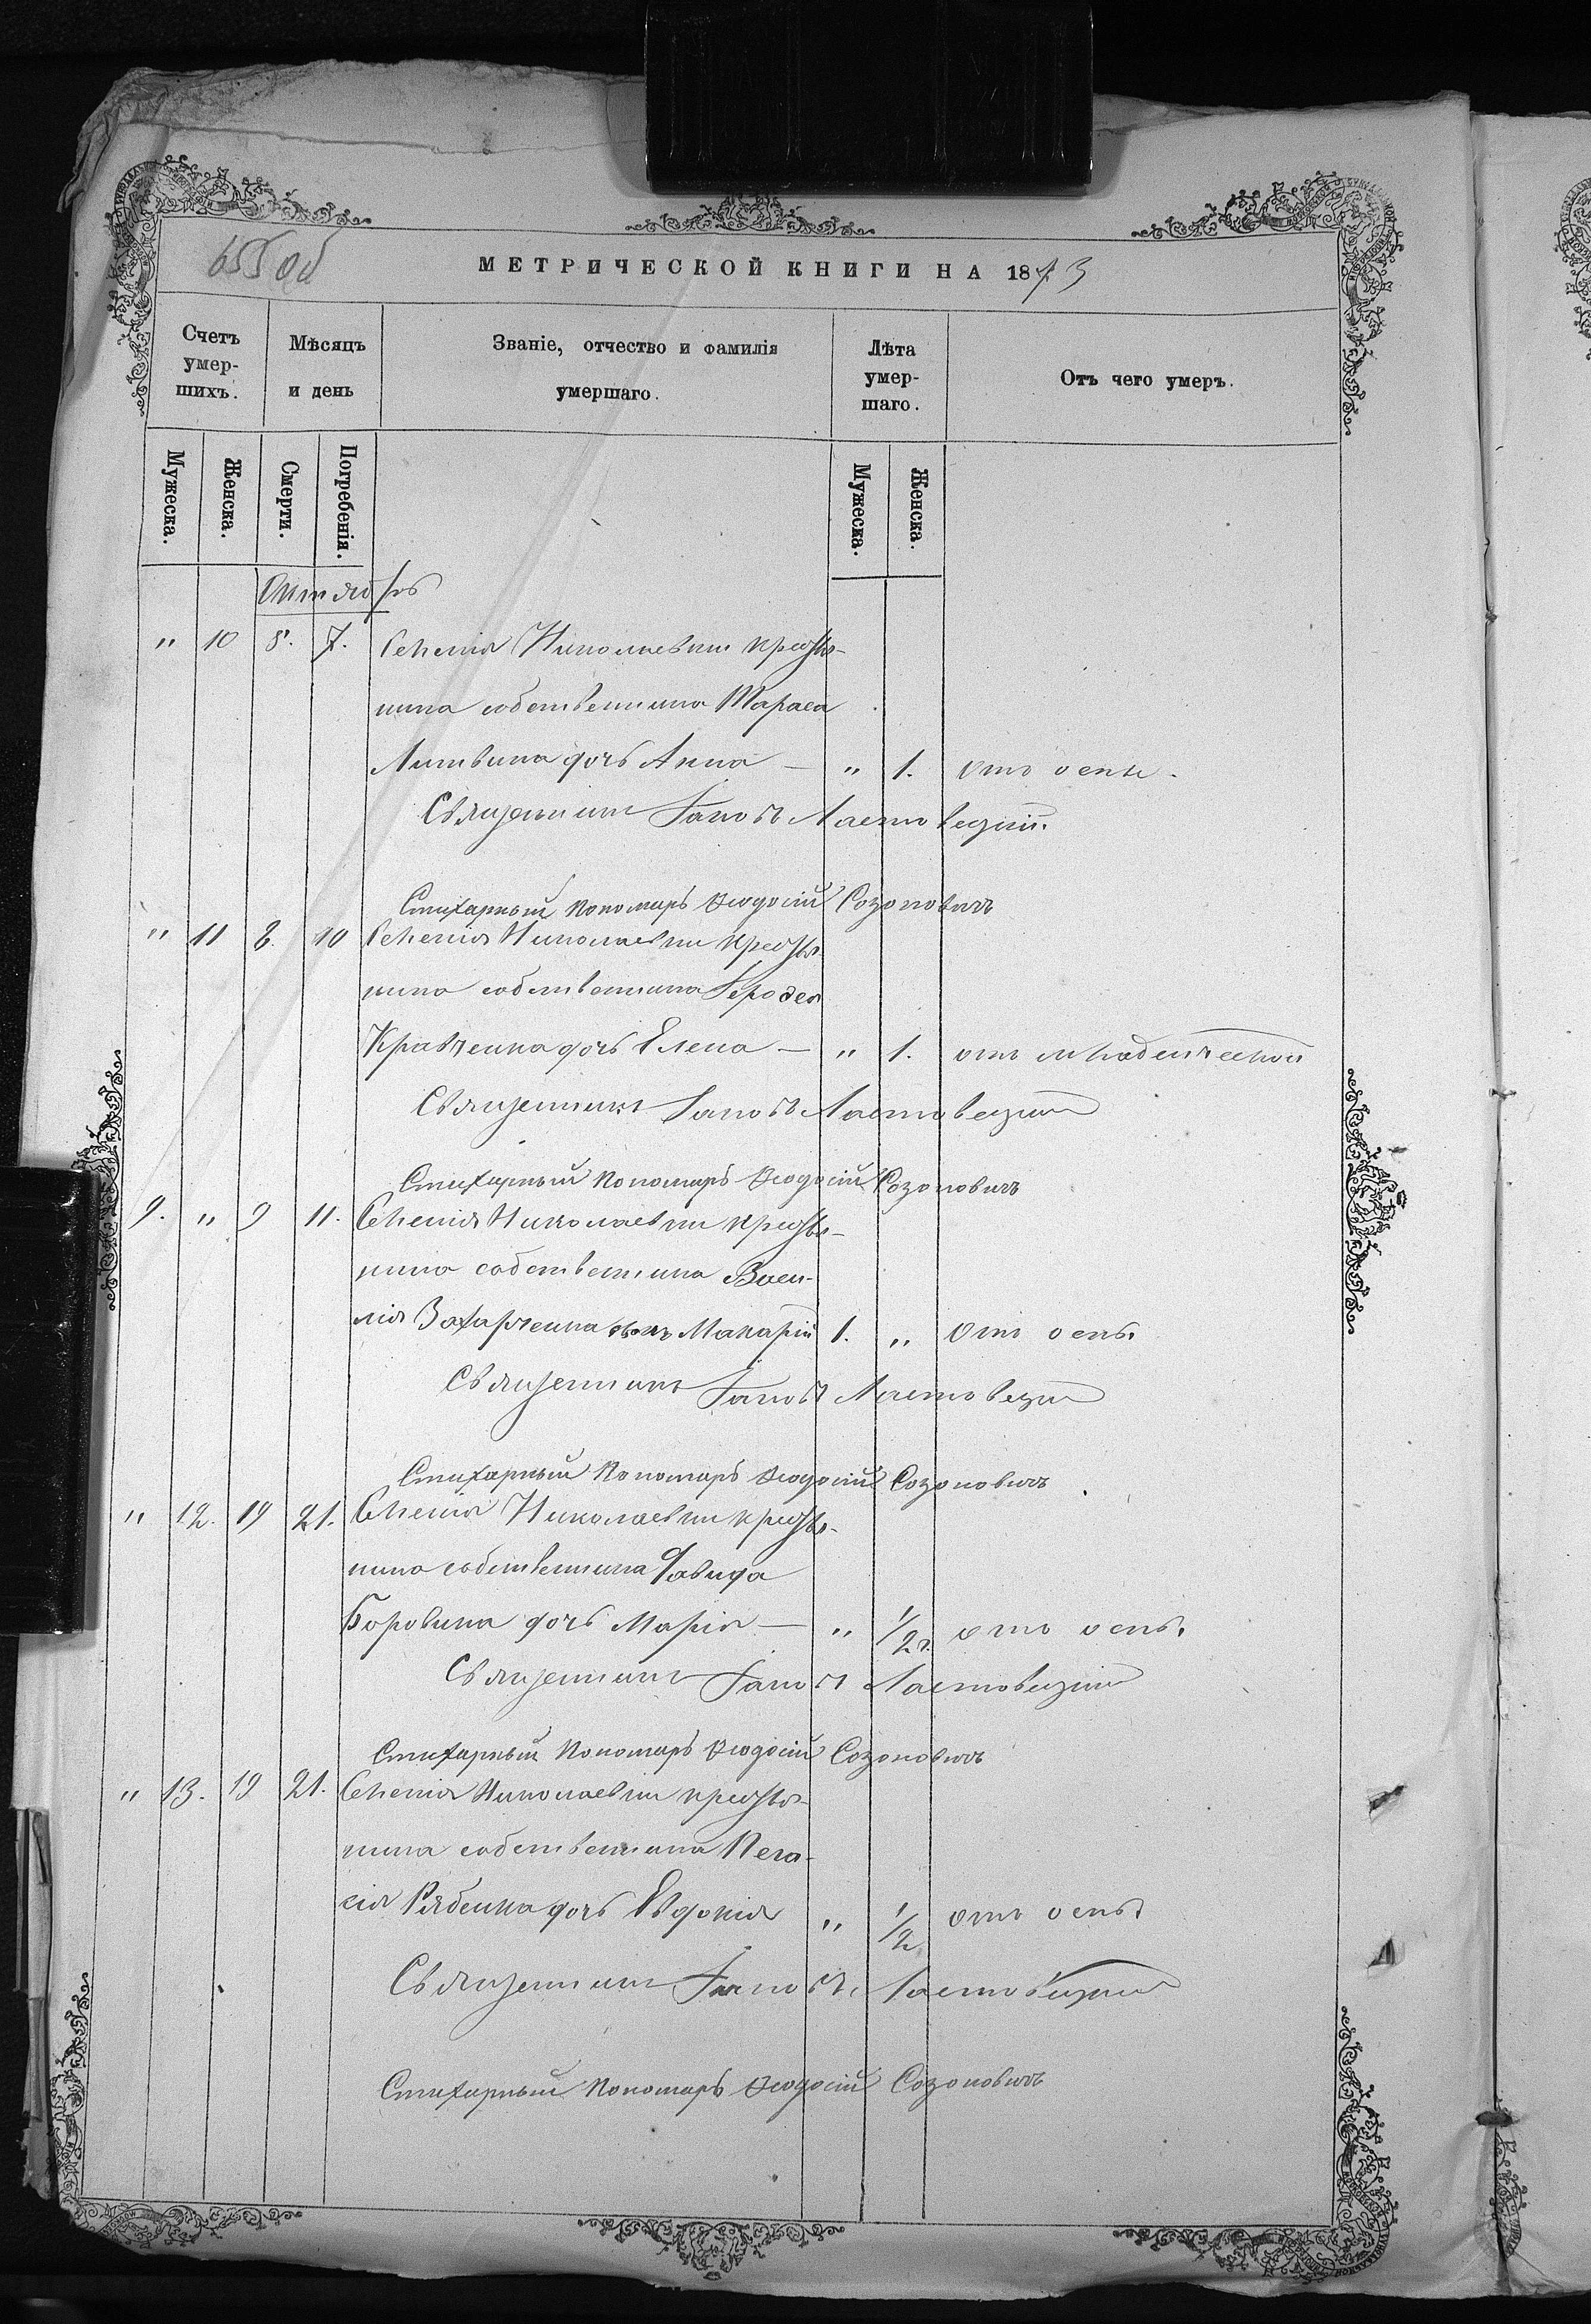 655 об
МЕТРИЧЕСКОЙ КНИГИ НА 1873
Счетъ умер-шихъ.
Мѣсяцъ и день
Званіе, отчество и фамилія умершаго.
Лѣта умер-шаго.
Отъ чего умеръ.
Мужеска.
Женска.
Смерти.
Погребенія.
Мужеска.
Женска.
Октябрь
" 10 5. 7. Селенія Николаевки кресть-
нина собственника Тараса
Литвина дочь Анна — " 1. отъ оспы.
Священникъ Іаковъ Ластовецкій.
Стихарный Пономарь Ѳеодосій Созоновичъ
" 11 8. 10 Селенія Николаевки крестья
нина собственника
Кравченка дочь Елена — " 1. отъ младенческой
Священникъ Іаковъ Ластовецкій
Стихарный Пономарь Ѳеодосій Созоновичъ
9. " 9 11. Селенія Николаевки крестья-
нина собственника Васи-
лія Захарченка сынъ Макарій 1. " Отъ оспы.
Священникъ Іаковъ Ластовецкій
Стихарный Пономарь Ѳеодосій Созоновичъ
" 12. 19 21. Селенія Николаевки крестья-
нина собственника Давида
Боровика дочь Марія — " 1/2 г. отъ оспы.
Священникъ Іаковъ Ластовецкій
Стихарный Пономарь Ѳеодосій Созоновичъ
" 13. 19 21. Селенія Николаевки крестья-
нина собственника Пела-
сія Рябенка дочь Евдокія " 1/2 отъ оспы
Священникъ Іаковъ Ластовецкій
Стихарный Пономарь Ѳеодосій Созоновичъ